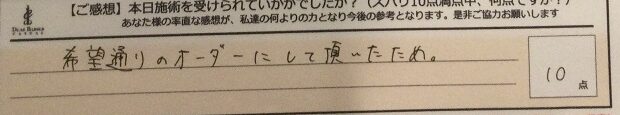 【ご感想】本日施術を受けられていかがでしたか?(ズバリ10点満点中、何点ですか?)
あなた様の率直な感想が、私達の何よりの力となり今後の参考となります。是非ご協力お願いします
希望通りのオーダーにして頂いたため。
10
点